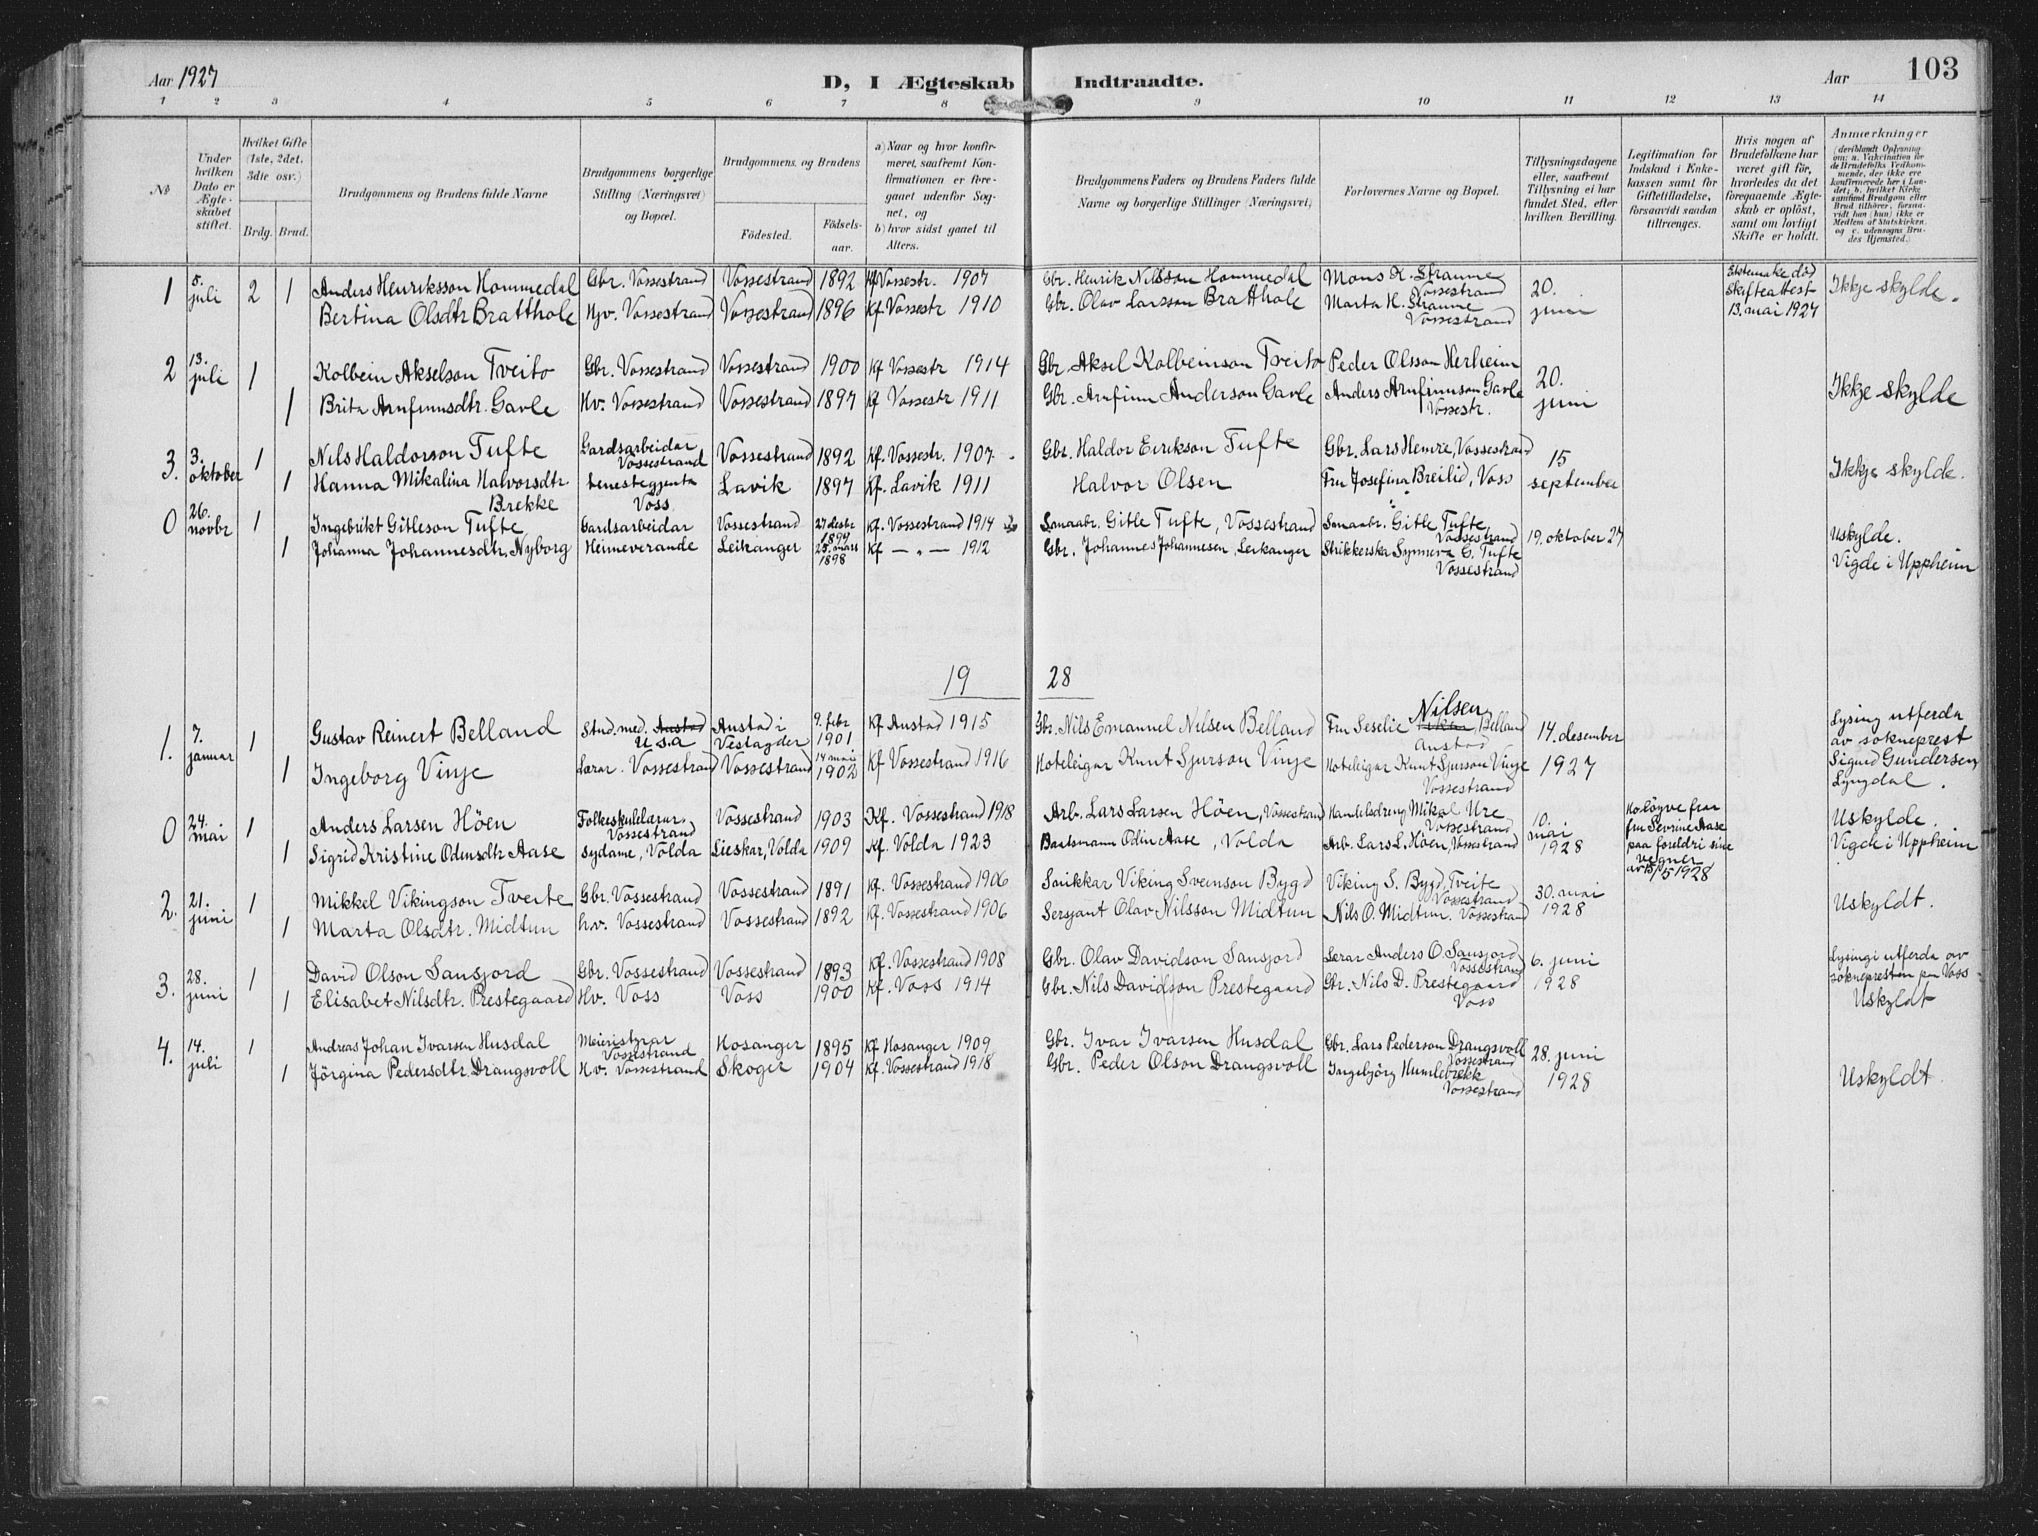 Aar 1927
D, I Ægteskab Indtraadte.
Aar
103
1 2 3 4 5 6 7 8 9 10 11 12 13 14
No
Under hvilken Dato er Ægteskabet stiftet.
Hvilket Gifte (1ste, 2det, 3die osv.)
Brdg. Brud.
Brudgommens og Brudens fulde Navne
Brudgommens borgerlige Stilling (Næringsvei) og Bopæl.
Brudgommens og Brudens
Fødested.
Fødselsaar.
a) Naar og hvor konfirmeret, saafremt Konfirmationen er foregaaet udenfor Sognet, og
b) hvor sidst gaaet til Alters.
Brudgommens Faders og Brudens Faders fulde Navne og borgerlige Stillinger (Næringsvei)
Forlovernes Navne og Bopæl.
Tillysningsdagene eller, saafremt Tillysning ei har fundet Sted, efter hvilken Bevilling.
Legitimation for Indskud i Enkekassen samt for Giftetilladelse, forsaavidt saadan tiltrænges.
Hvis nogen af Brudefolkene har været gift før, hvorledes da det foregaaende Ægteskab er opløst, samt om lovligt Skifte er holdt.
Anmærkninger (deriblandt Oplysning om: a. Vakcination for de Brudefolks Vedkommende, der ikke ere konfirmerede her i Landet; b. hvilket Kirkesamfund Brudgom eller Brud tilhører, forsaavidt han (hun) ikke er Medlem af Statskirken, og c. udensogns Brudes Hjemsted.)
1 5. juli 2 Anders Henriksson Hommedal Gbr. Vossestrand Vossestrand 1892 Kf Vossestr. 1907 Gbr. Henrik Nilsson Hommedal Mons K. Stranne Vossestrand 20. juni Ektemake død Skifteattest 13. mai 1927 Ikkje skylde.
1 Bertina Olsdtr Bratthole Hjv. Vossestrand Vossestrand 1896 Kf. Vossestr 1910 Gbr. Olav Larsson Bratthole Marta H. Stranne Vossestrand
2 13. juli 1 Kolbein Akselson Tveito Gbr. Vossestrand Vossestrand 1900 Kf Vossestr 1914 Gbr. Aksel Kolbeinson Tveito Peder Olsson Herheim 20. juni Ikkje skylde
1 Brita Arnfinnsdtr. Gavle Hv. Vossestrand Vossestrand 1897 Kf Vossestr 1911 Gbr. Arnfinn Anderson Gavle Anders Arnfinnson Gavle Vossestr.
3. 3. oktober 1 Nils Haldorson Tufte Gardsarbeidar Vossestrand Vossestrand 1892 Kf. Vossestr. 1907. Gbr. Haldor Eirikson Tufte Gbr. Lars Hemre, Vossestrand 15 september Ikkje skylde.
1 Hanna Mikalina Halvorsdtr. Brekke Tenestegjenta Voss Lavik 1897 Kf. Lavik 1911 Halvor Olsen Fru Josefina Breilid, Voss
0 26. novbr 1 Ingebrikt Gitleson Tufte Gardsarbeidar Vossestrand 27 desbr 1899 Kf. Vossestrand 1914 Smaabr. Gitle Tufte, Vossestrand Smaabr. Gitle Tufte, Vossestrand 19. oktober 27 Uskylde.
1 Johanna Johannesdtr. Nyborg Heimeverande Leikanger 25. mars 1898 Kf — „ — 1912 Gbr. Johannes Johannesen, Leikanger Strikkerska Synneva G. Tufte Vossestrand Vigde i Uppheim
19 28
1. 7. januar 1 Gustav Reinert Belland Stud. med. Austad U.S.A Austad i Vestagder 9. febr 1901 Kf Austad 1915 Gbr. Nils Emanuel Nilsen Belland Fru Seselie Nilsen Belland Austad 14. desember 1927 Lysing utferda av sokneprest Sigurd Gundersen, Lyngdal.
1 Ingeborg Vinje Lærar. Vossestrand Vossestrand 14 mai 1902 Kf Vossestrand 1916 Hoteleigar Knut Sjurson Vinje Hoteleigar Knut Sjurson Vinje Vossestrand
0 24. mai 1 Anders Larsen Höen Folkeskulelærar, Vossestrand Vossestrand 1903 Kf. Vossestrand 1918 Arb. Lars Larsen Höen, Vossestrand Handelsdreng Mikal Ure Vossestrand 10. mai 1928 fru Sevrine Aase paa foreldri sine vegner av 15/5 1928 Uskylde.
1 Sigrid Kristine Odensdtr Aase Sydame, Volda Lieskar, Volda 1909 Kf. Volda 1923 Baatsmann Odin Aase, Volda Arb. Lars L. Höen, Vossestrand Vigde i Uppheim
2. 21. juni 1 Mikkel Vikingson Tveite Gbr. Vossestrand Vossestrand 1891 Kf. Vossestrand 1906 Snikkar Viking Sveinson Bygd Viking S. Bygd, Tveite Vossestrand 30. mai 1928 Uskyldt.
1 Marta Olsdtr. Midtun h.v. Vossestrand Vossestrand 1892 Kf. Vossestrand 1906 Sersjant Olav Nilsson Midtun Nils O. Midtun. Vossestrand
3. 28. juni 1 David Olson Sansjord Gbr. Vossestrand Vossestrand 1893 Kf. Vossestrand 1908 Gbr. Olav Davidson Sansjord Lerar Anders O. Sansjord Vossestrand 6. juni 1928 Lysingi utferda av soknepresten paa Voss
1 Elisabet Nilsdtr. Prestegaard Hv. Voss Voss 1900 Kf. Voss 1914 Gbr. Nils Davidson Prestegaard Gbr. Nils D. Prestegaard Voss Uskyldt
4. 14. juli 1 Andreas Johan Ivarsen Husdal Meieristyrar Vossestrand Hosanger 1895 Kf Hosanger 1909 Gbr. Ivar Ivarsen Husdal Gbr. Lars Pederson Drangsvoll Vossestrand 28. juni 1928 Uskyldt.
1 Jörgina Pedersdtr. Drangsvoll Hv. Vossestrand Skoger 1904 Kf. Vossestrand 1918 Gbr. Peder Olson Drangsvoll Ingebjörg Humlebrekk Vossestrand